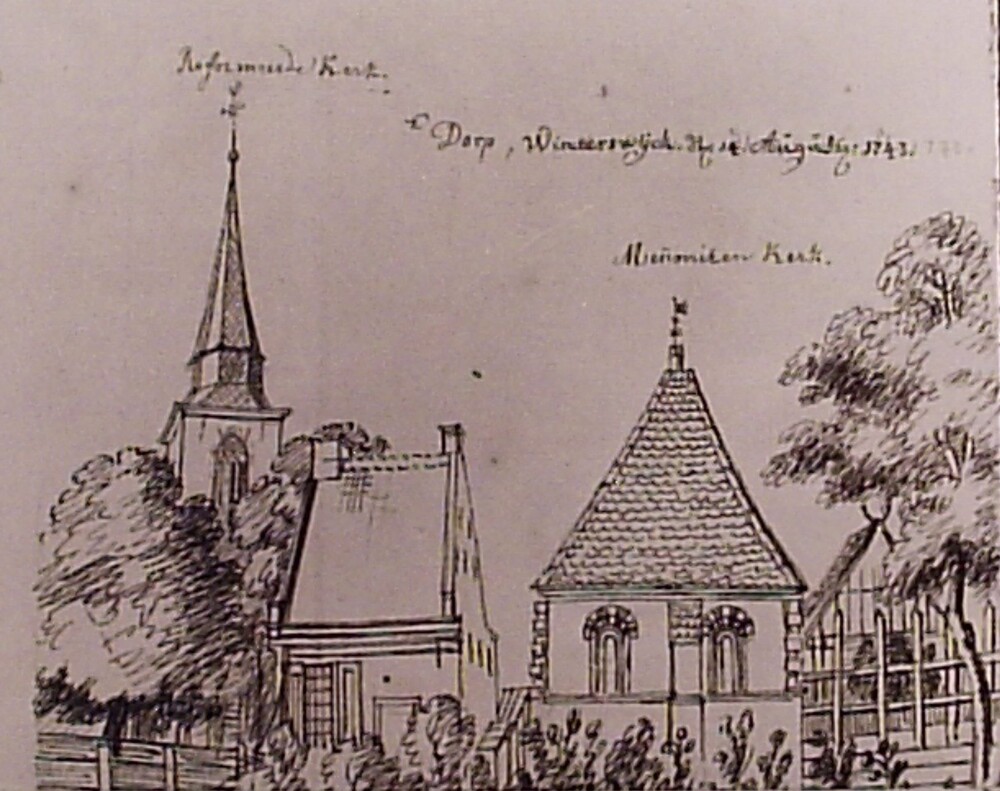 Reformeerde Kerk.
't Dorp, Winterswijck. den 14 Augusty: 1743.
Menoniten Kerk.